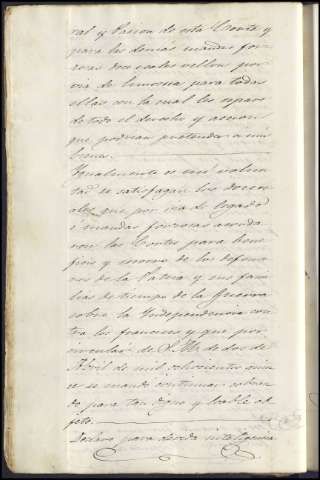 ral y Pasion de esta Corte y
para las demas mandas for-
zosas doce reales vellon por
via de limosna para todas
ellas con la cual las separo
de todo el derecho y accion
que podrian pretender a mis
bienes.
Igualmente es mi volun-
tad se satisfagan los doce rea-
les que por via de legado
i mandas forzosas acorda-
ron las Cortes para bene-
ficio y socorro de los defenso-
res de la Patria y sus fami-
lias de tiempo de la Guerra
sobre la Independencia con-
tra los franceses y que por
circular de S.M. de dos de
Abril de mil ochocientos quin-
ce se mando continuar cobran-
do para tan digno y loable ob-
jeto.
Declaro para devida inteligencia